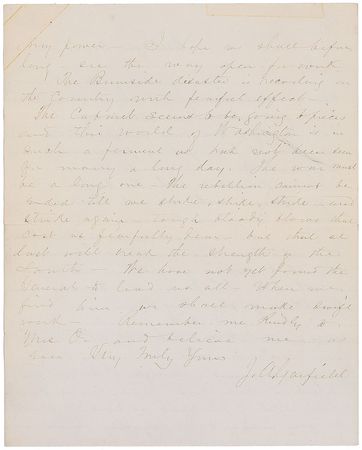 my power — I hope we shall before
long see the way open for work
The Burnside disaster is recoiling on
the Country with fearful effect —
The Cabinet seems to be going to pieces
and this world of Washington is in
such a ferment as has not been seen
for many a long day. The war must
be a long one — the rebellion cannot be
ended till we strike, strike, strike — and
strike again — rough bloody blows that
cost us fearfully dear but that at
last will break the strength of the
South — We have not yet found the
General to lead us all — When we
find him we shall make swift
work — Remember me kindly to
Mrs. and believe me as
ever Very Truly Yours
J. A. Garfield